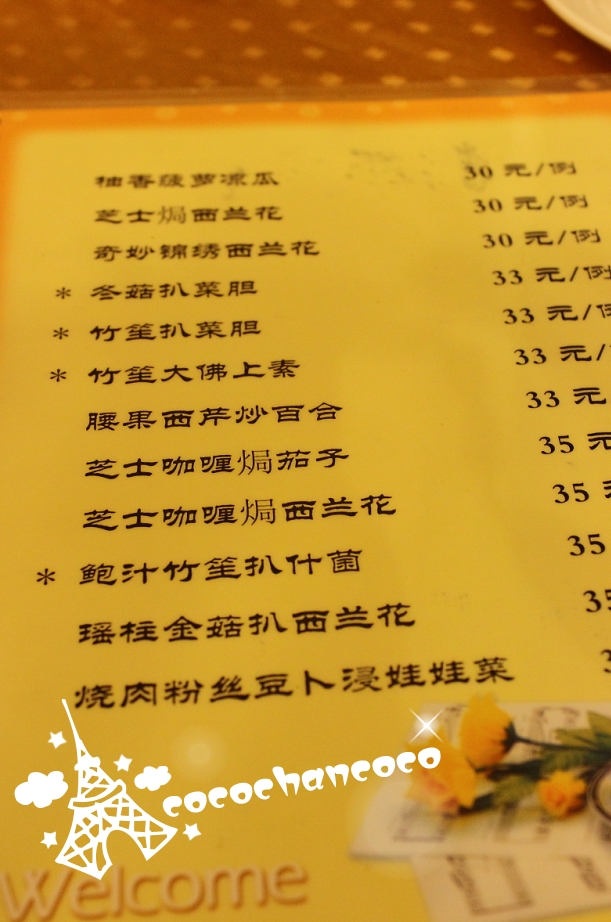 柚香菠萝凉瓜 30 元/例
芝士焗西兰花 30 元/例
奇妙锦绣西兰花 30 元/例
* 冬菇扒菜胆 33 元/例
* 竹笙扒菜胆 33 元/例
* 竹笙大佛上素 33 元/
腰果西芹炒百合 33 元
芝士咖喱焗茄子 35 元
芝士咖喱焗西兰花 35 元
* 鲍汁竹笙扒什菌 35
瑶柱金菇扒西兰花 35
烧肉粉丝豆卜浸娃娃菜 3
cocochancoco
Welcome